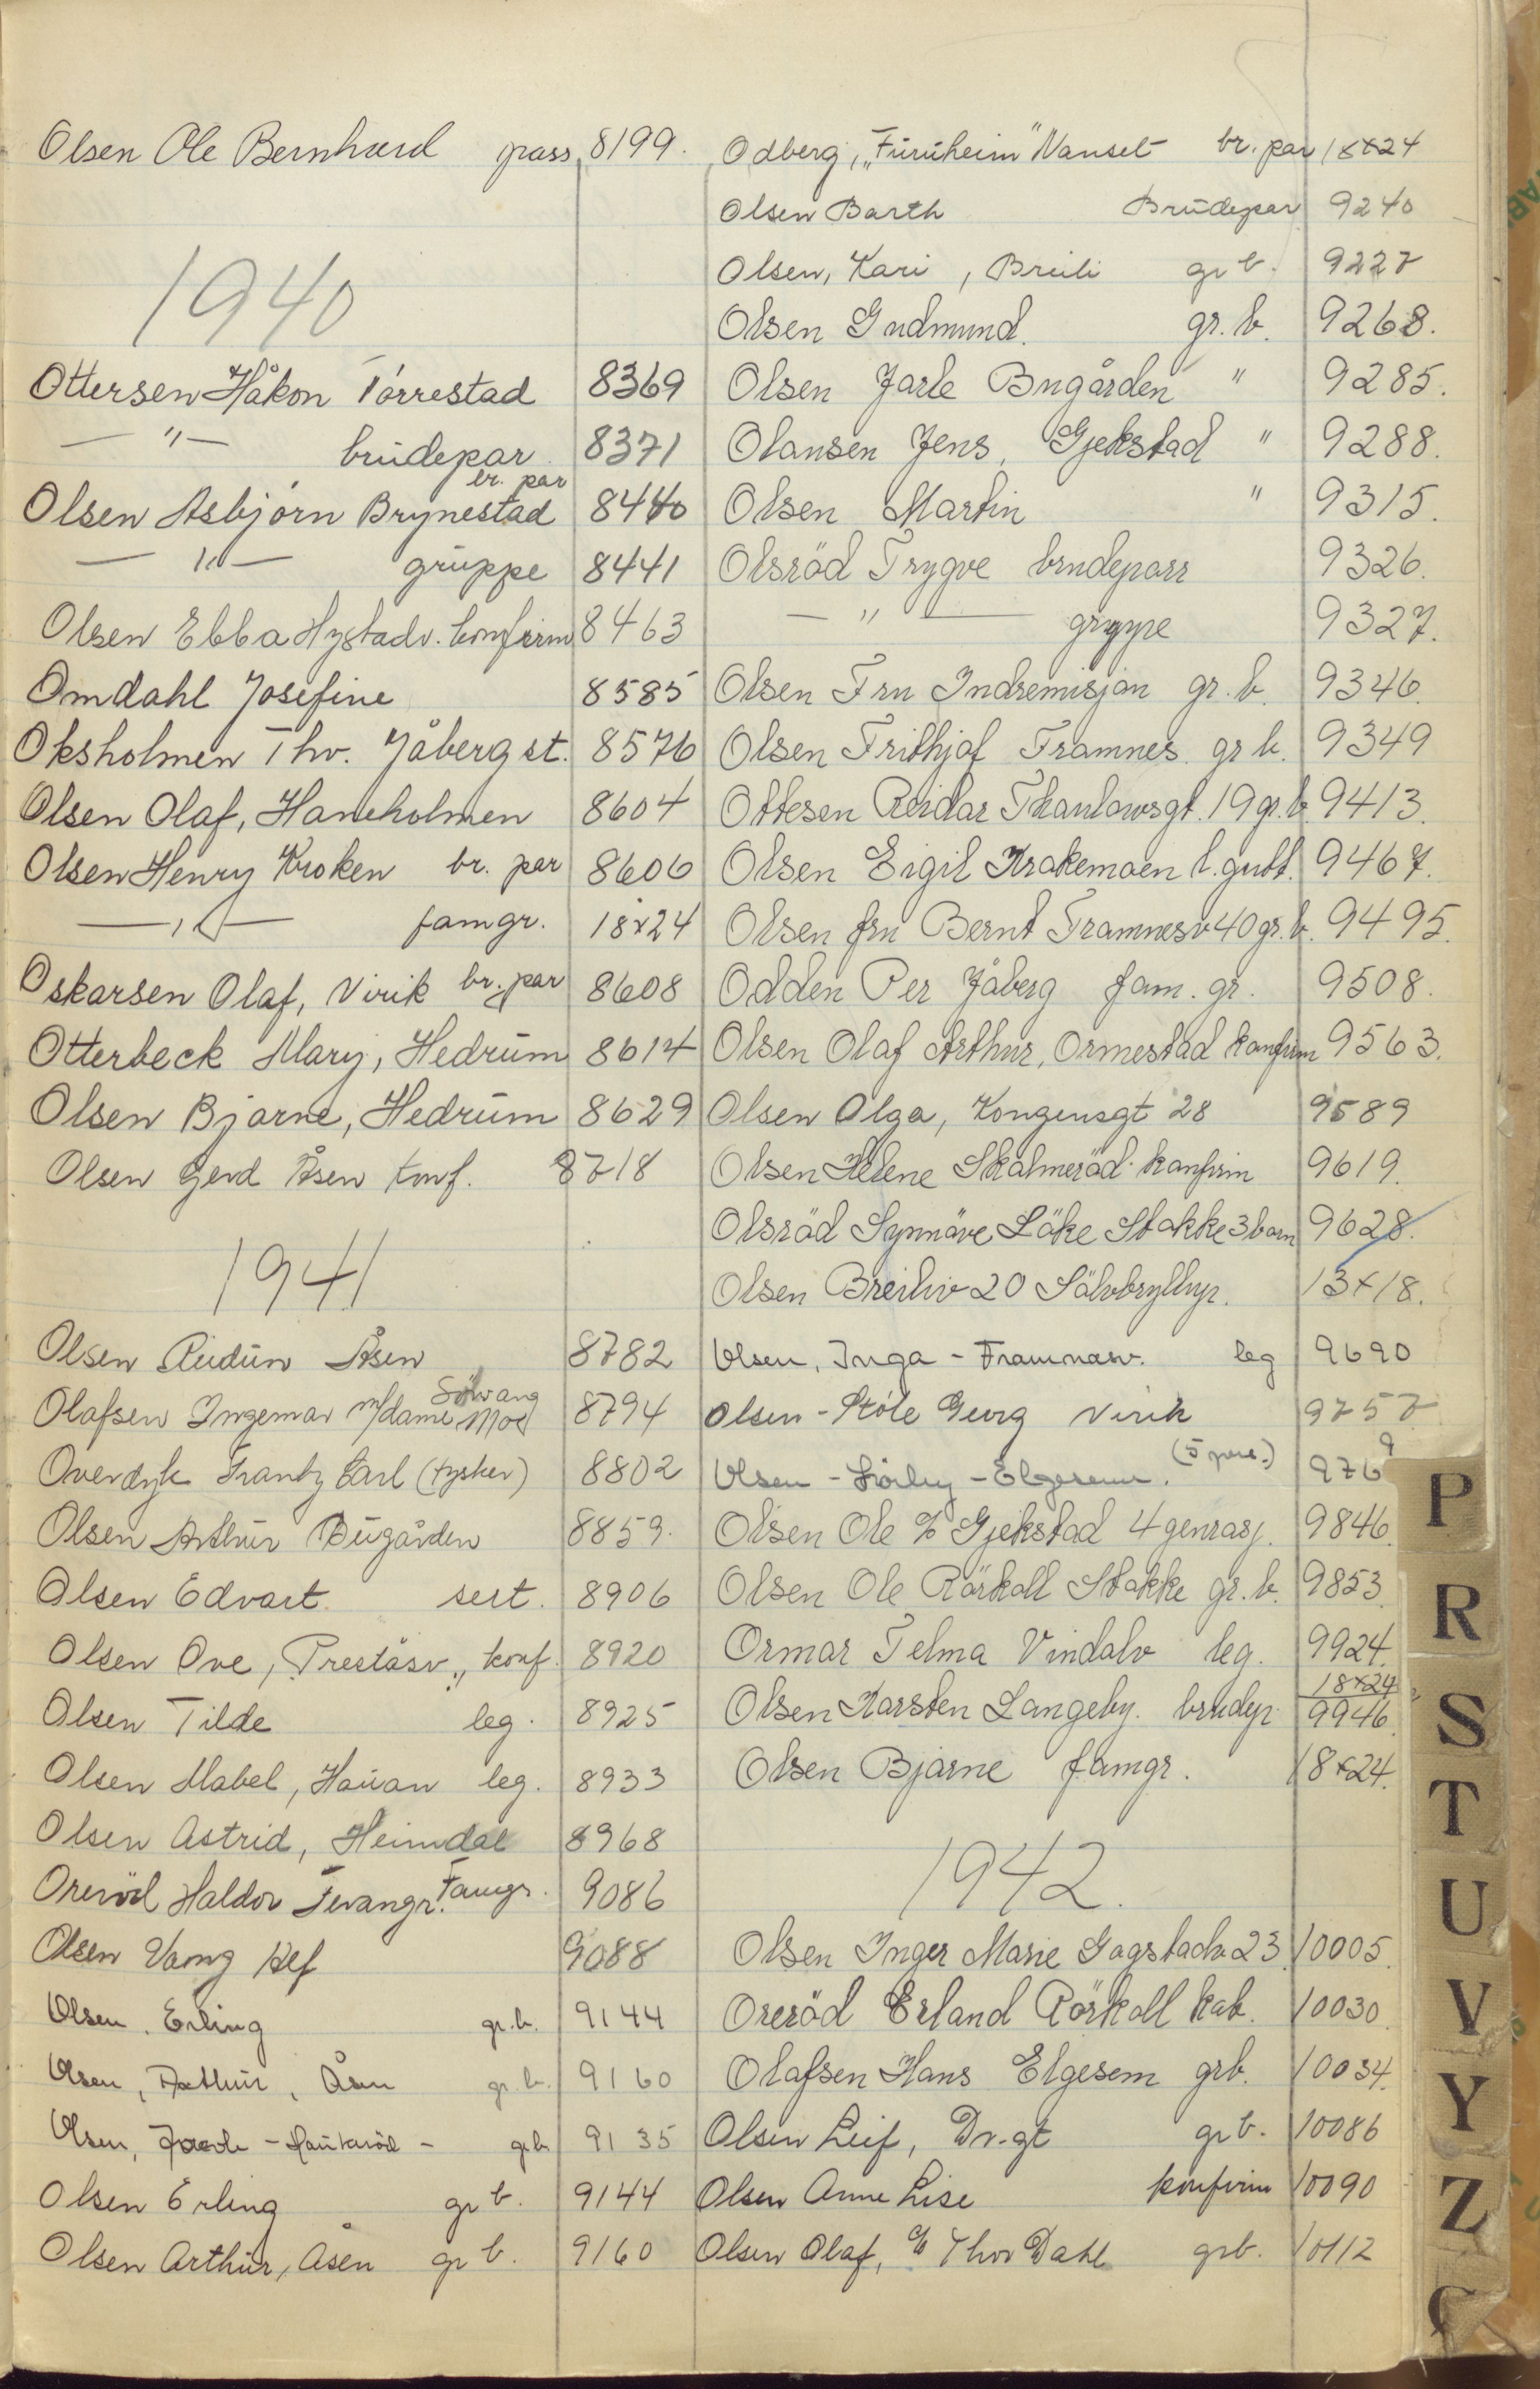 Olsen Ole Bernhard pass 8199.
1940
Ottersen Håkon Torrestad 8369
— " — brudepar 8371
br. par
Olsen Asbjørn Brynestad 8440
— " — gruppe 8441
Olsen Ebba Nystadv. konfirm 8463
Omdahl Josefine 8585
Oksholmen Thv. Jåberg st. 8576
Olsen Olaf, Haneholmen 8604
Olsen Henry Kroken br. par 8606
— " — famgr. 18x24
Oskarsen Olaf, Virik br. par 8608
Otterbeck Mary, Hedrum 8614
Olsen Bjarne, Hedrum 8629
Olsen Gerd Åsen konf. 8718
1941
Olsen Audun Åsen 8782
Olafsen Ingemar m/dame Solvang Moe 8794
Overdyk Frantz Carl (tysker) 8802
Olsen Arthur Bugården 8859.
Olsen Edvart sert. 8906
Olsen Ove, Preståsv., konf. 8920
Olsen Tilde leg. 8925
Olsen Mabel, Hauan leg. 8933
Olsen Astrid, Heimdal 8968
Oreröd Haldor Fevangr. Famgr. 9086
Olsen Vang Alf 9088
Olsen, Erling gr.b. 9144
Olsen, Arthur, Åsen gr.b. 9160
Olsen, - Haukeröd - gr.b 9135
Olsen Erling gr b. 9144
Olsen Arthur, Åsen gr b. 9160
Odberg, „Furuheim" Nanset br. par 18x24
Olsen Barth Brudepar 9240
Olsen, Kari, Breili gr b. 9227
Olsen Gudmund. gr. b. 9268.
Olsen Jarle Bugården " 9285.
Olausen Jens, Gjekstad " 9288.
Olsen Martin " 9315.
Olsröd Trygve brudeparr 9326.
— " — gruppe 9327.
Olsen Fru Indremisjon gr. b. 9346.
Olsen Frithjof Framnes gr b. 9349
Ottesen Reidar Thaulowsgt. 19 gr. b. 9413.
Olsen Eigil Krakemoen l. gutt. 9467.
Olsen fru Bernt Framnesv 40 gr. b. 9495.
Odden Per Jåberg fam. gr. 9508.
Olsen Olaf Arthur, Ormestad konfirm 9563.
Olsen Olga, Kongensgt 28 9589
Olsen Helene Skalmeröd konfirm 9619.
Olsröd Synnöve Löke Stokke 3 barn 9628.
Olsen Breiliv 20 Sölvbryllup. 13x18.
Olsen, Inga - Framnesv. leg 9690
Olsen - Ståle Georg Virik 9757
Olsen - - Elgesem. (5 pers.) 9769
Olsen Ole % Gjekstad 4 genrasj. 9846
Olsen Ole Rörkoll Stokke gr. b. 9853
Ormar Telma Vindalv leg. 9924.
Olsen Karsten Langeby. brudep. 18x24 9946
Olsen Bjarne famgr. 18x24.
1942.
Olsen Inger Marie Gogstadv 23 10005.
Oreröd Erland Rörkoll kab. 10030.
Olafsen Hans Elgesem grb. 10034.
Olsen Leif, Dr.gt gr b. 10086
Olsen Anne Lise konfirm 10090
Olsen Olaf, % Thor Dahl grb. 10112
P
R
S
T
U
V
Y
Z